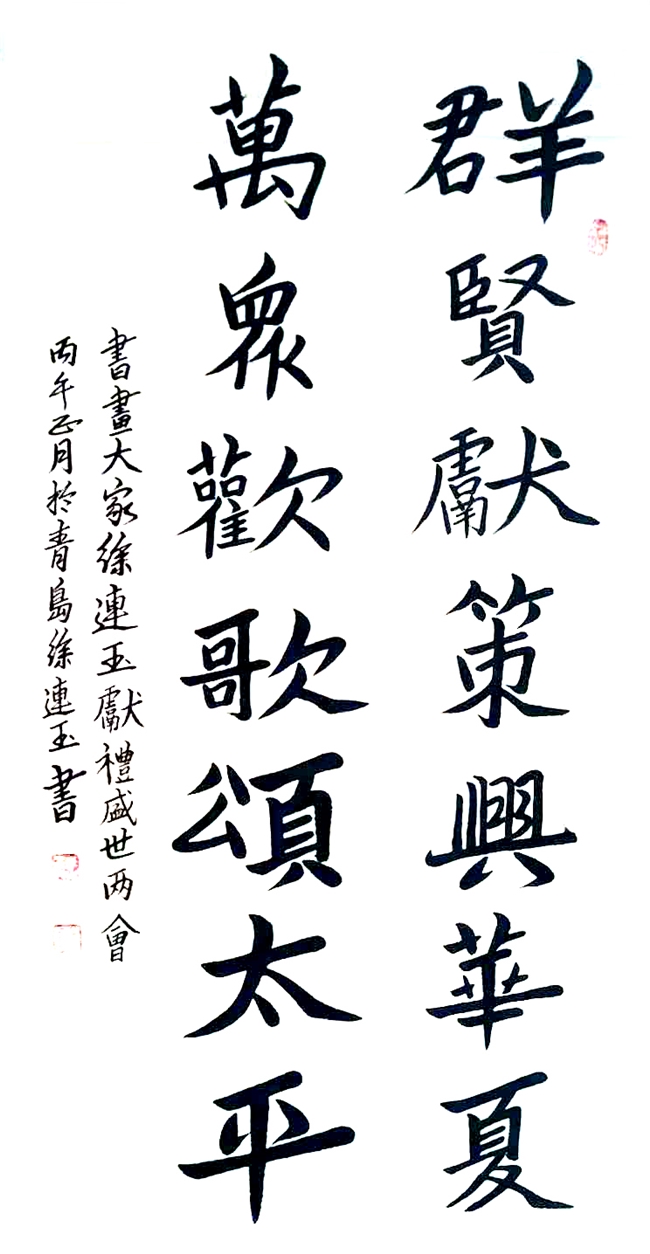 群賢獻策興華夏
萬眾歡歌頌太平
書畫大家徐連玉獻禮盛世两會
丙午正月於青島徐連玉書